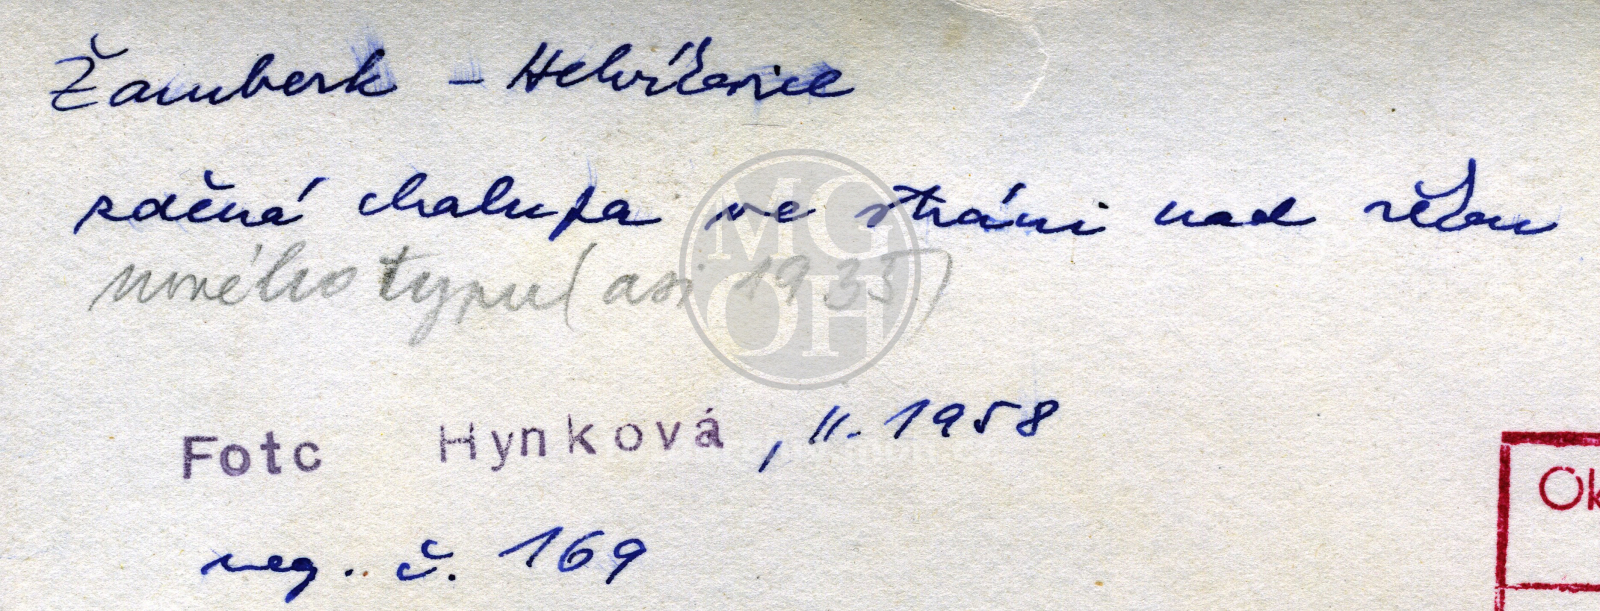 Žamberk – Helvíkovice
zděná chalupa ve stráni nad řekou
nového typu (asi 1935)
MG
OH
Foto Hynková, II. 1958
neg. č. 169
Ok